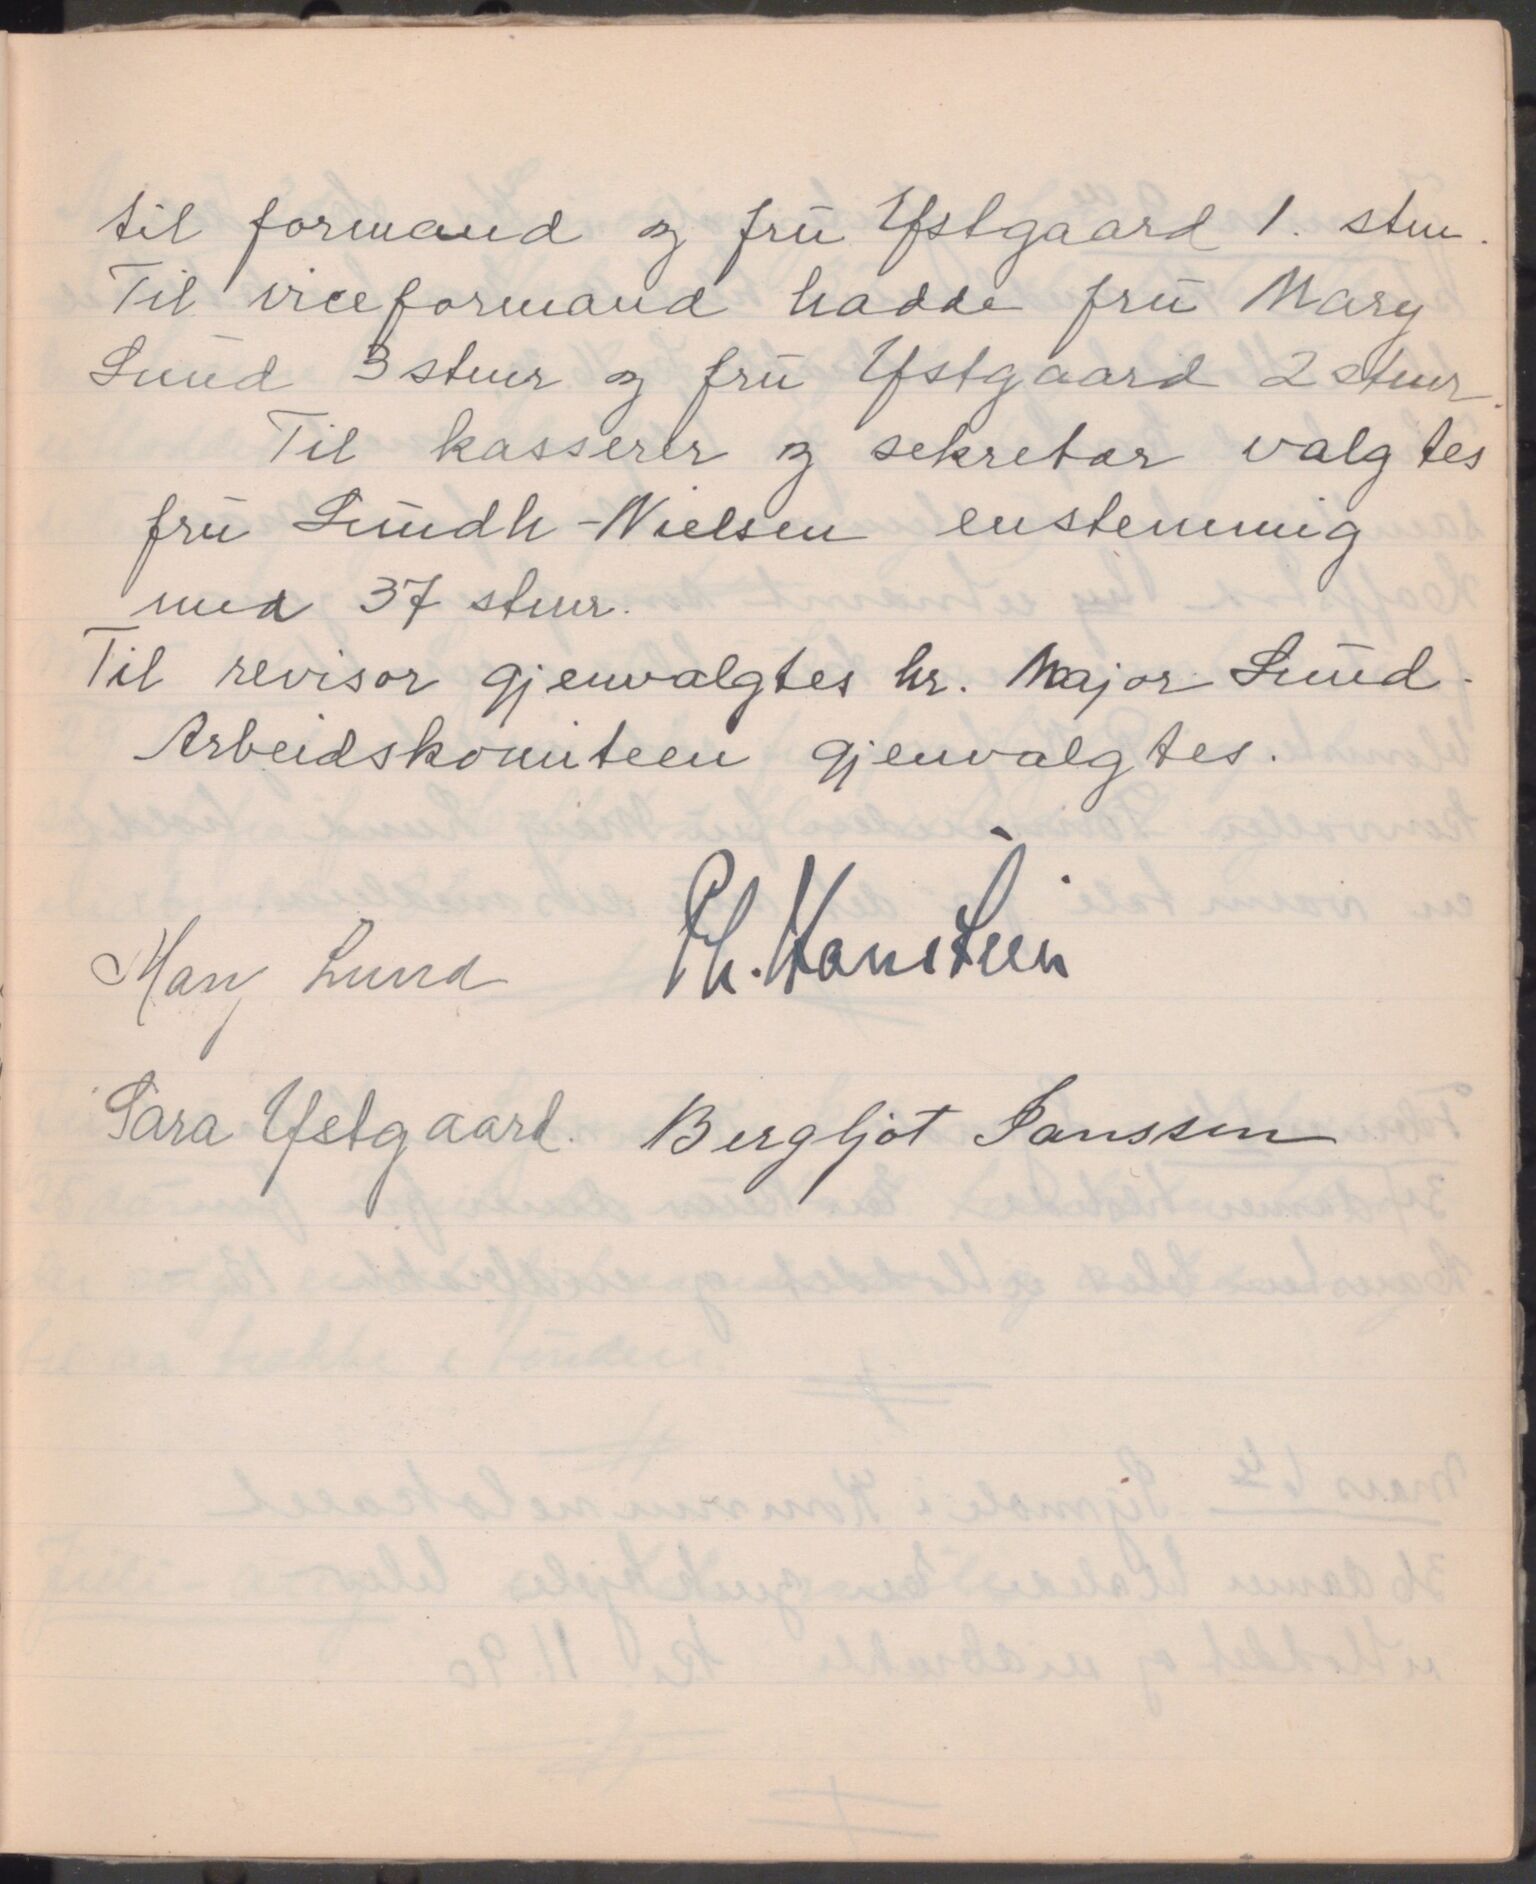 til formand og frü Ystgaard 1. stm.
Til viceformand hadde frü Mary
Lund 3 stmr og frü Ystgaard 2 stmr.
Til kasserer og sekretær valgtes
frü Lündh-Nielsen enstemmig
med 37 stmr.
Til revisor gjenvalgtes hr. Major Lund.
Arbeidskomiteen gjenvalgtes.
Mary Lund
Th. Hansteen
Sara Ystgaard.
Bergljot Janssen